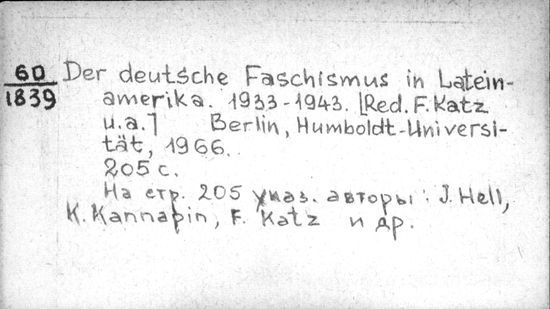 60
1839
Der deutsche Faschismus in Latein-
amerika. 1933-1943. [Red. F. Katz
u.a.] Berlin, Humboldt-Universi-
tät, 1966.
205 с.
На стр. 205 указ. авторы: J. Hell,
K. Kannapin, F. Katz и др.